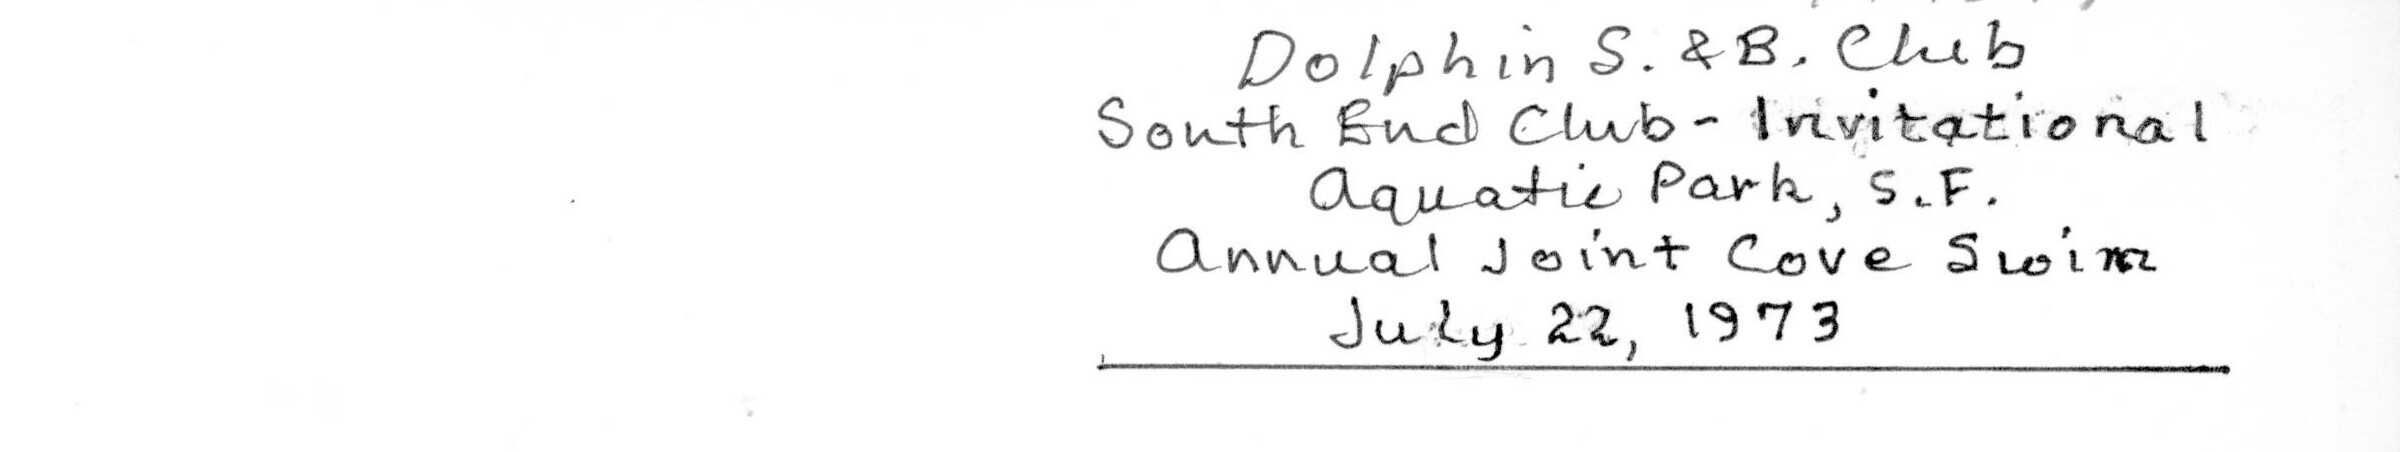 Dolphin S. & B. Club
South End Club - Invitational
Aquatic Park, S.F.
Annual Joint Cove Swim
July 22, 1973